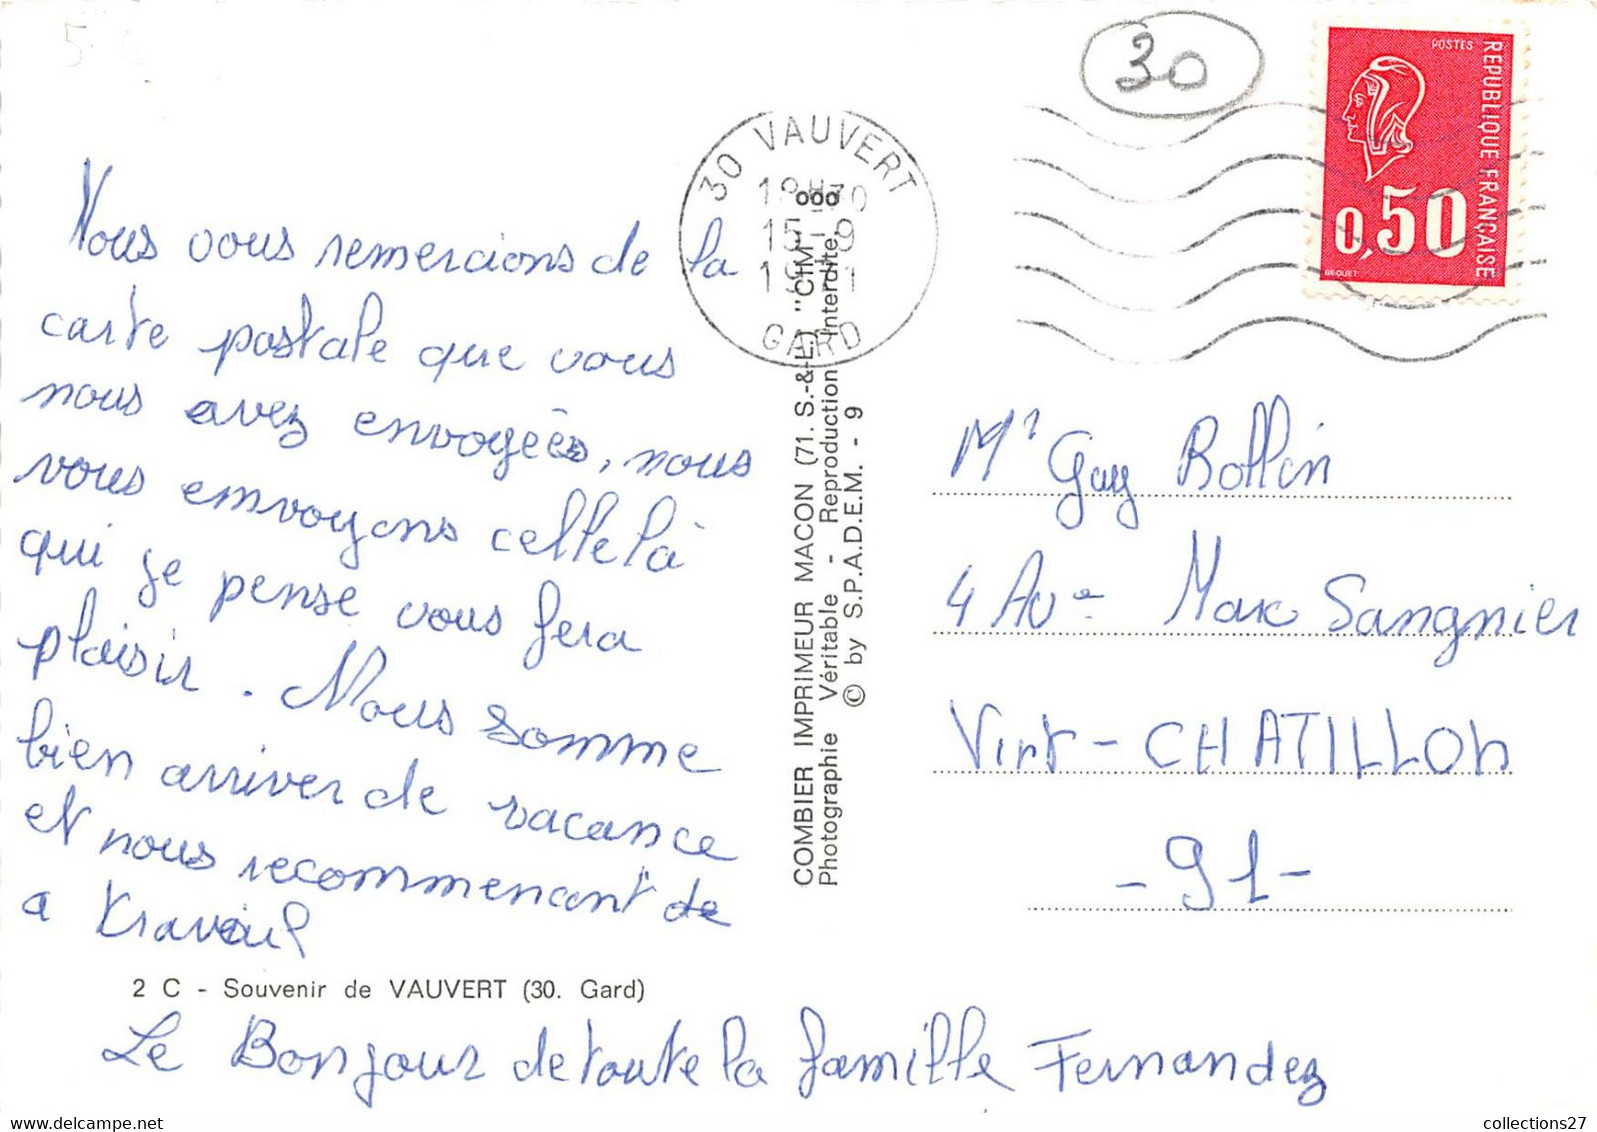 30
30 VAUVERT
18H30
15-9
1971
GARD
POSTES
REPUBLIQUE FRANÇAISE
0,50
BEQUET
Nous vous remercions de la
carte postale que vous
nous avez envoyées, nous
vous envoyons celle là
qui je pense vous fera
plaisir. Nous somme
bien arriver de vacance
et nous recommencont de
a travail
2 C - Souvenir de VAUVERT (30. Gard)
Le Bonjour de toute la famille Fernandez
COMBIER IMPRIMEUR MACON (71. S.-&-L.) "CIM"
Photographie Véritable - Reproduction Interdite
© by S.P.A.D.E.M. - 9
Mr Guy Bollin
4 Ave Marc Sangnier
Virt-CHATILLON
-91-
collections27